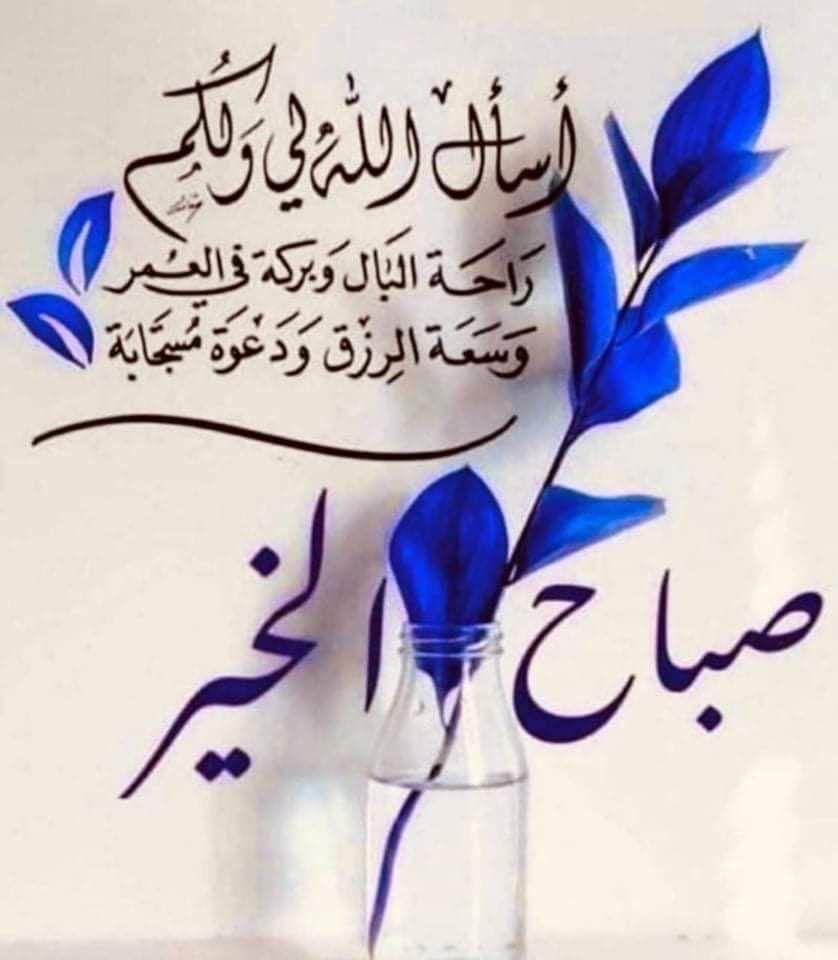 أسأل اللهُ لي وَلكُم
رَاحَة البَال وَبركة في العُمر
وَسَعَة الرِزْق وَدَعوَة مُستجَابَة
صباح الخير